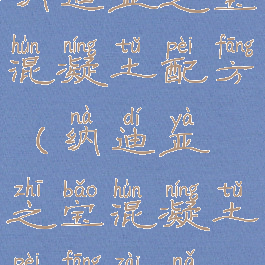 hùn níng tǔ pèi fāng
混凝土配方
nà dí yà
(纳迪亚
zhī bǎo hùn níng tǔ
之宝混凝土
pèi fāng zài nǎ